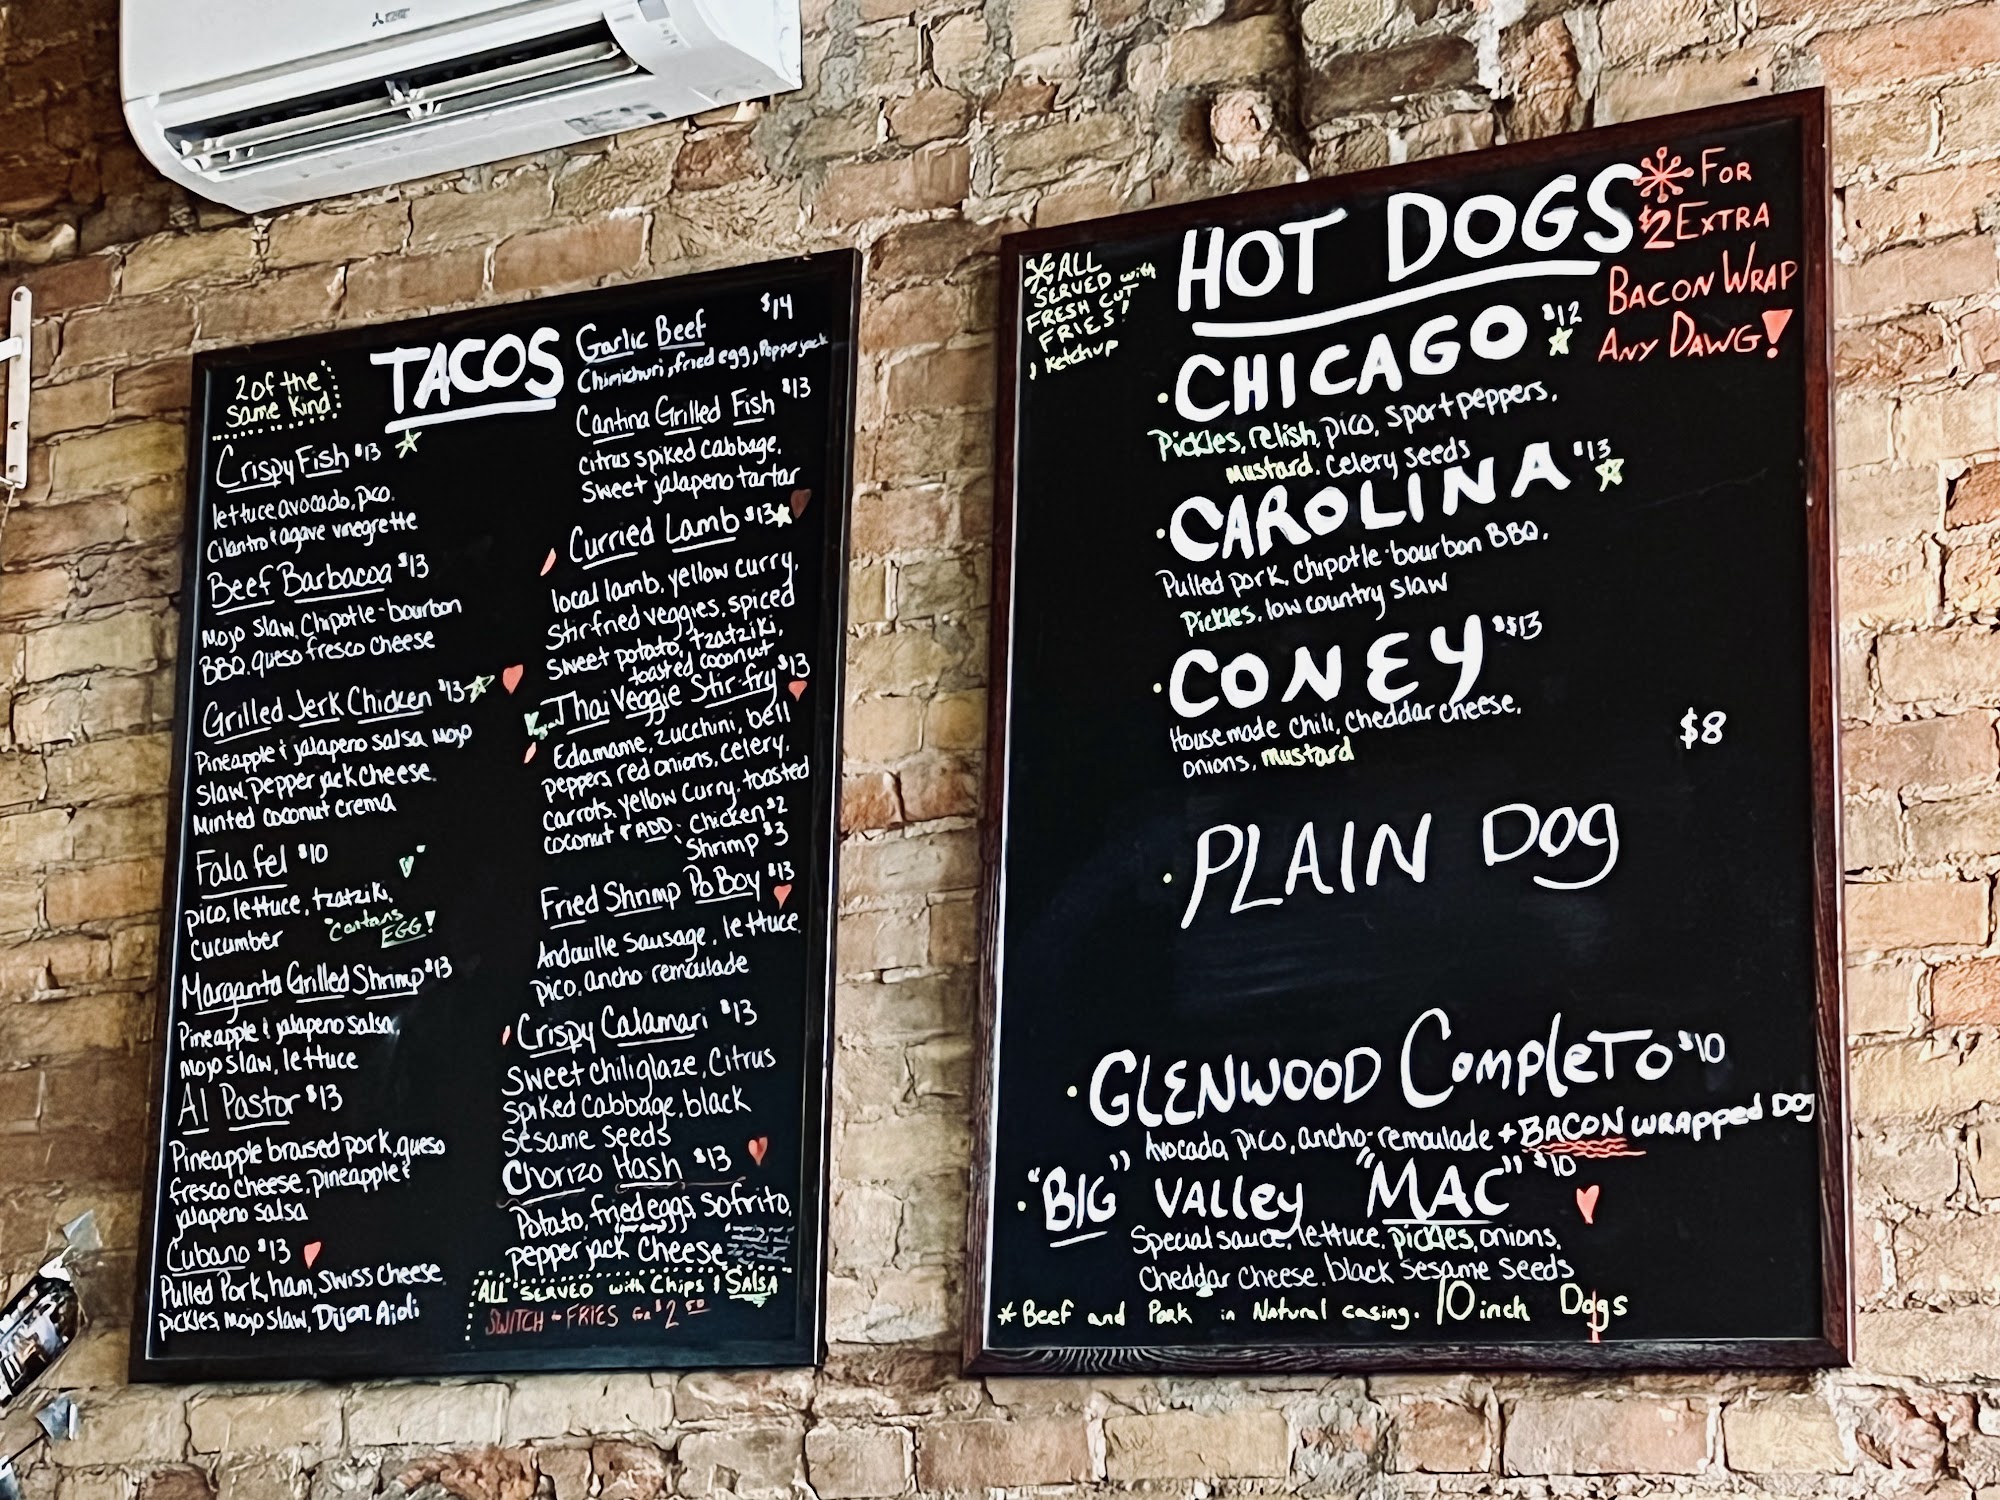 TACOS
2 of the
same kind
Crispy Fish $13
lettuce avocado, pico.
Cilantro & agave vinegrette
Beef Barbacoa $13
Mojo slaw, Chipotle-bourbon
BBQ, queso fresco cheese
Grilled Jerk Chicken $13
Pineapple & jalapeno salsa Mojo
slaw, pepper jack cheese.
Minted coconut crema
Falafel $10
pico, lettuce, tzatziki,
cucumber
*Contans
EGG!
Marganta Grilled Shrimp $13
Pineapple & jalapeno salsa,
mojo slaw, lettuce
Al Pastor $13
Pineapple braised pork, queso
fresco cheese, pineapple &
jalapeno salsa
Cubano $13
Pulled Pork, ham, Swiss cheese,
pickles, mojo slaw, Dijon Aioli
Garlic Beef $14
Chimichuri, fried egg, Pepper jack
Cantina Grilled Fish $13
citrus spiked cabbage,
sweet jalapeno tartar
Curried Lamb $13
local lamb, yellow curry,
Stirfried veggies, spiced
sweet potato, tzatziki,
toasted coconut
Thai Veggie Stir-fry $13
Edamame, zucchini, bell
peppers, red onions, celery,
carrots, yellow curry, toasted
coconut * ADD: Chicken $2
Shrimp $3
Fried Shrimp Po Boy $13
Andouille sausage, lettuce,
pico, ancho remoulade
Crispy Calamari $13
Sweet chili glaze, Citrus
spiked cabbage, black
sesame seeds
Chorizo Hash $13
Potato, fried eggs, sofrito,
pepper jack cheese
ALL SERVED with Chips & SALSA
SWITCH to FRIES for $2.50
*ALL
SERVED with
FRESH CUT
FRIES!
& Ketchup
HOT DOGS
* FOR
$2 EXTRA
BACON WRAP
ANY DAWG!
· CHICAGO $12
Pickles, relish, pico, sport peppers,
mustard, celery seeds
· CAROLINA $13
Pulled pork, chipotle-bourbon BBQ,
Pickles, low country slaw
· CONEY $13
House made chili, cheddar cheese,
onions, mustard
$8
· PLAIN Dog
· GLENWOOD CompleTo $10
Avocado, pico, ancho-remoulade + BACON WRAPPED DOG
· "BIG" Valley "MAC" $10
Special sauce, lettuce, pickles, onions,
Cheddar Cheese, black sesame seeds
* Beef and Pork in Natural casing. 10 inch Dogs